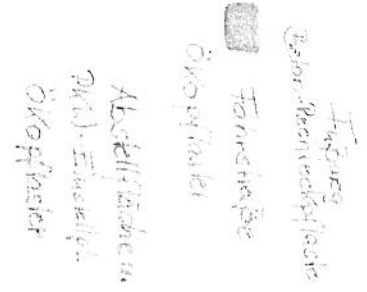 Fußweg
Beton-Rechteckpflaster
Fahrstraße
Ökopflaster
Abstellflächen
PKW-Einstellpl.
Ökopflaster